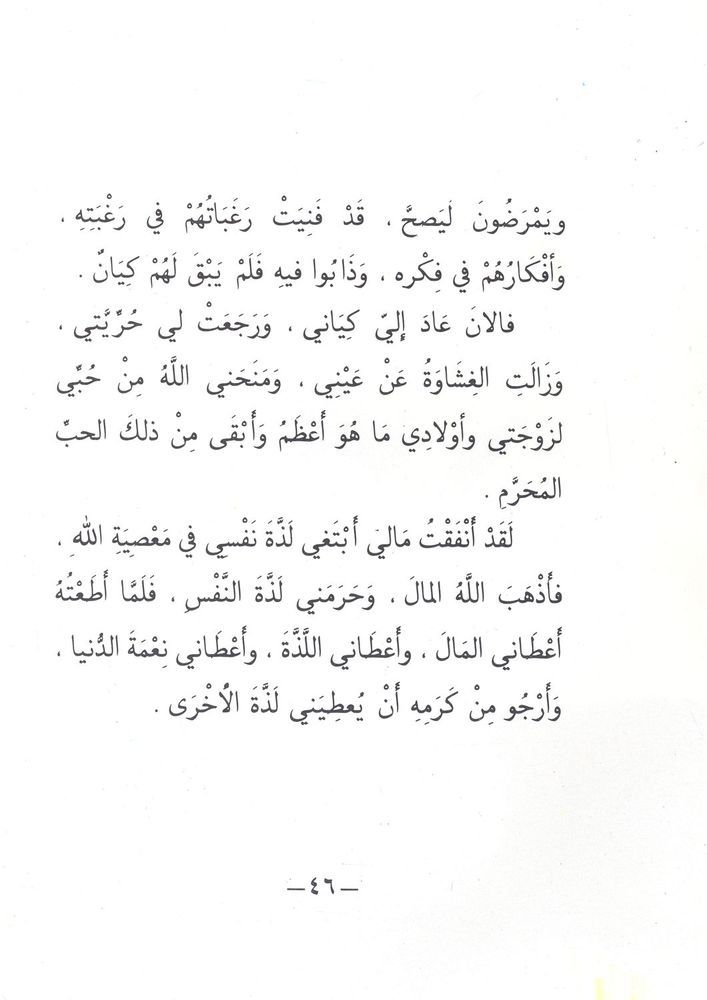 ويَمْرَضُونَ لَيَصحَّ ، قَدْ فَنِيَتْ رَغَبَاتُهُمْ في رَغْبَتِهِ ،
وَأفْكَارُهُمْ في فِكْره ، وَذَابُوا فيهِ فَلَمْ يَبْقَ لَهُمْ كِيَانٌ .
فالانَ عَادَ إليّ كِيَاني ، وَرَجَعَتْ لي حُرِّيَّتي ،
وَزَالَتِ الغِشَاوَةُ عَنْ عَيْنِي ، وَمَنَحَني اللَّهُ مِنْ حُبِّي
لزَوْجَتي وأوْلادِي مَا هُوَ أَعْظَمُ وَأَبْقَى مِنْ ذلكَ الحبِّ
المُحَرَّمِ .
لَقَدْ أَنْفَقْتُ مَاليَ أَبْتَغي لَذَّةَ نَفْسِي في مَعْصِيَةِ اللهِ ،
فأَذْهَبَ اللَّهُ المالَ ، وَحَرَمَني لَذَّةَ النَّفْسِ ، فَلَمَّا أَطَعْتُهُ
أَعْطَاني المَالَ ، وأَعْطَاني اللَّذَّةَ ، وأَعْطَاني نِعْمَةَ الدُّنيا ،
وَأَرْجُو مِنْ كَرَمِهِ أَنْ يُعطِيَني لَذَّةَ الأُخْرَى .
—٤٦—